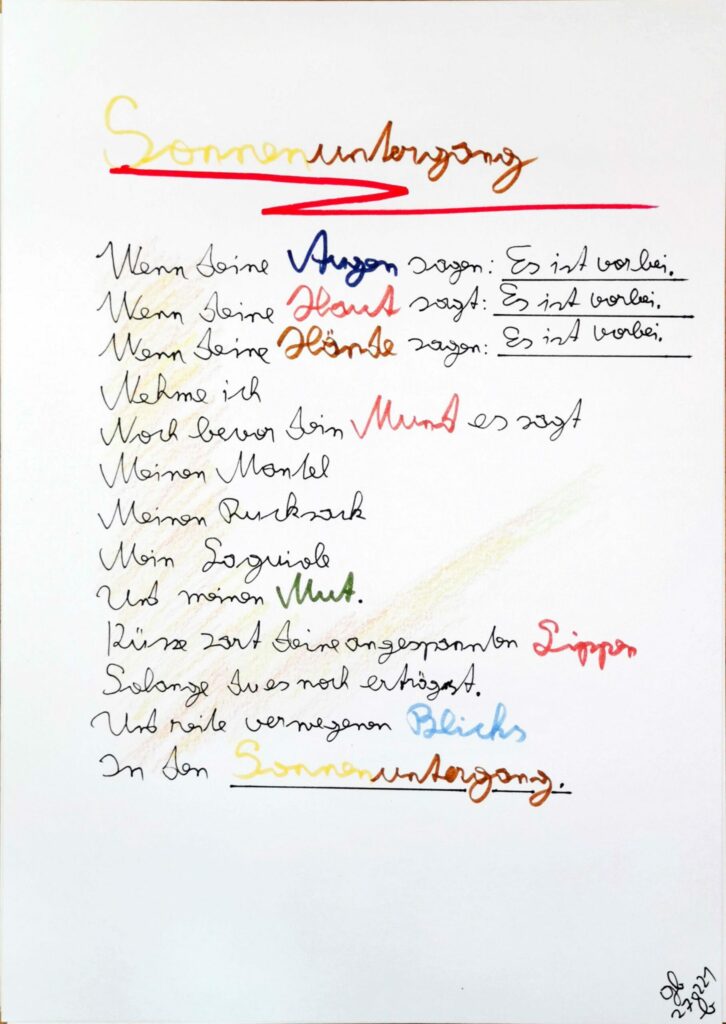 Sonnenuntergang
Wenn deine Augen sagen: Es ist vorbei.
Wenn deine Haut sagt: Es ist vorbei.
Wenn deine Hände sagen: Es ist vorbei.
Nehme ich
Noch bevor dein Mund es sagt
Meinen Mantel
Meinen Rucksack
Mein Laguiole
Und meinen Mut.
Küsse zart deine angespannten Lippen
Solange du es noch erträgst.
Und reite verwegenen Blicks
In den Sonnenuntergang.